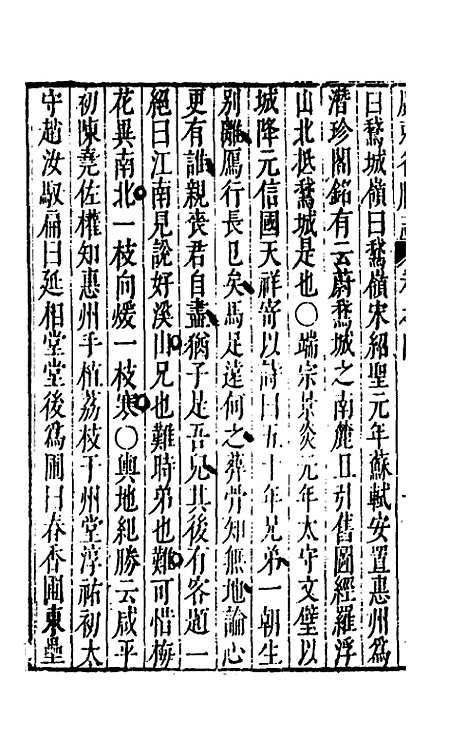 曰鵞城嶺曰鵞嶺宋紹聖元年蘇軾安置惠州爲
潛珍閣銘有云蔚鵞城之南麓且引舊圖經羅浮
山北抵鵞城是也〇端宗景炎元年太守文璧以
城降元信國天祥寄以詩曰五十年兄弟一朝生
別離鴈行長已矣馬足遠何之葬骨知無地論心
更有誰親喪君自盡猶子是吾兒其後有客題一
絕曰江南見說好溪山兄也難時弟也難可惜梅
花異南北一枝向煖一枝寒〇輿地紀勝云咸平
初陳堯佐權知惠州手植荔枝于州堂淳祐初太
守趙汝馭扁曰延相堂堂後爲圃曰春香圃東壘